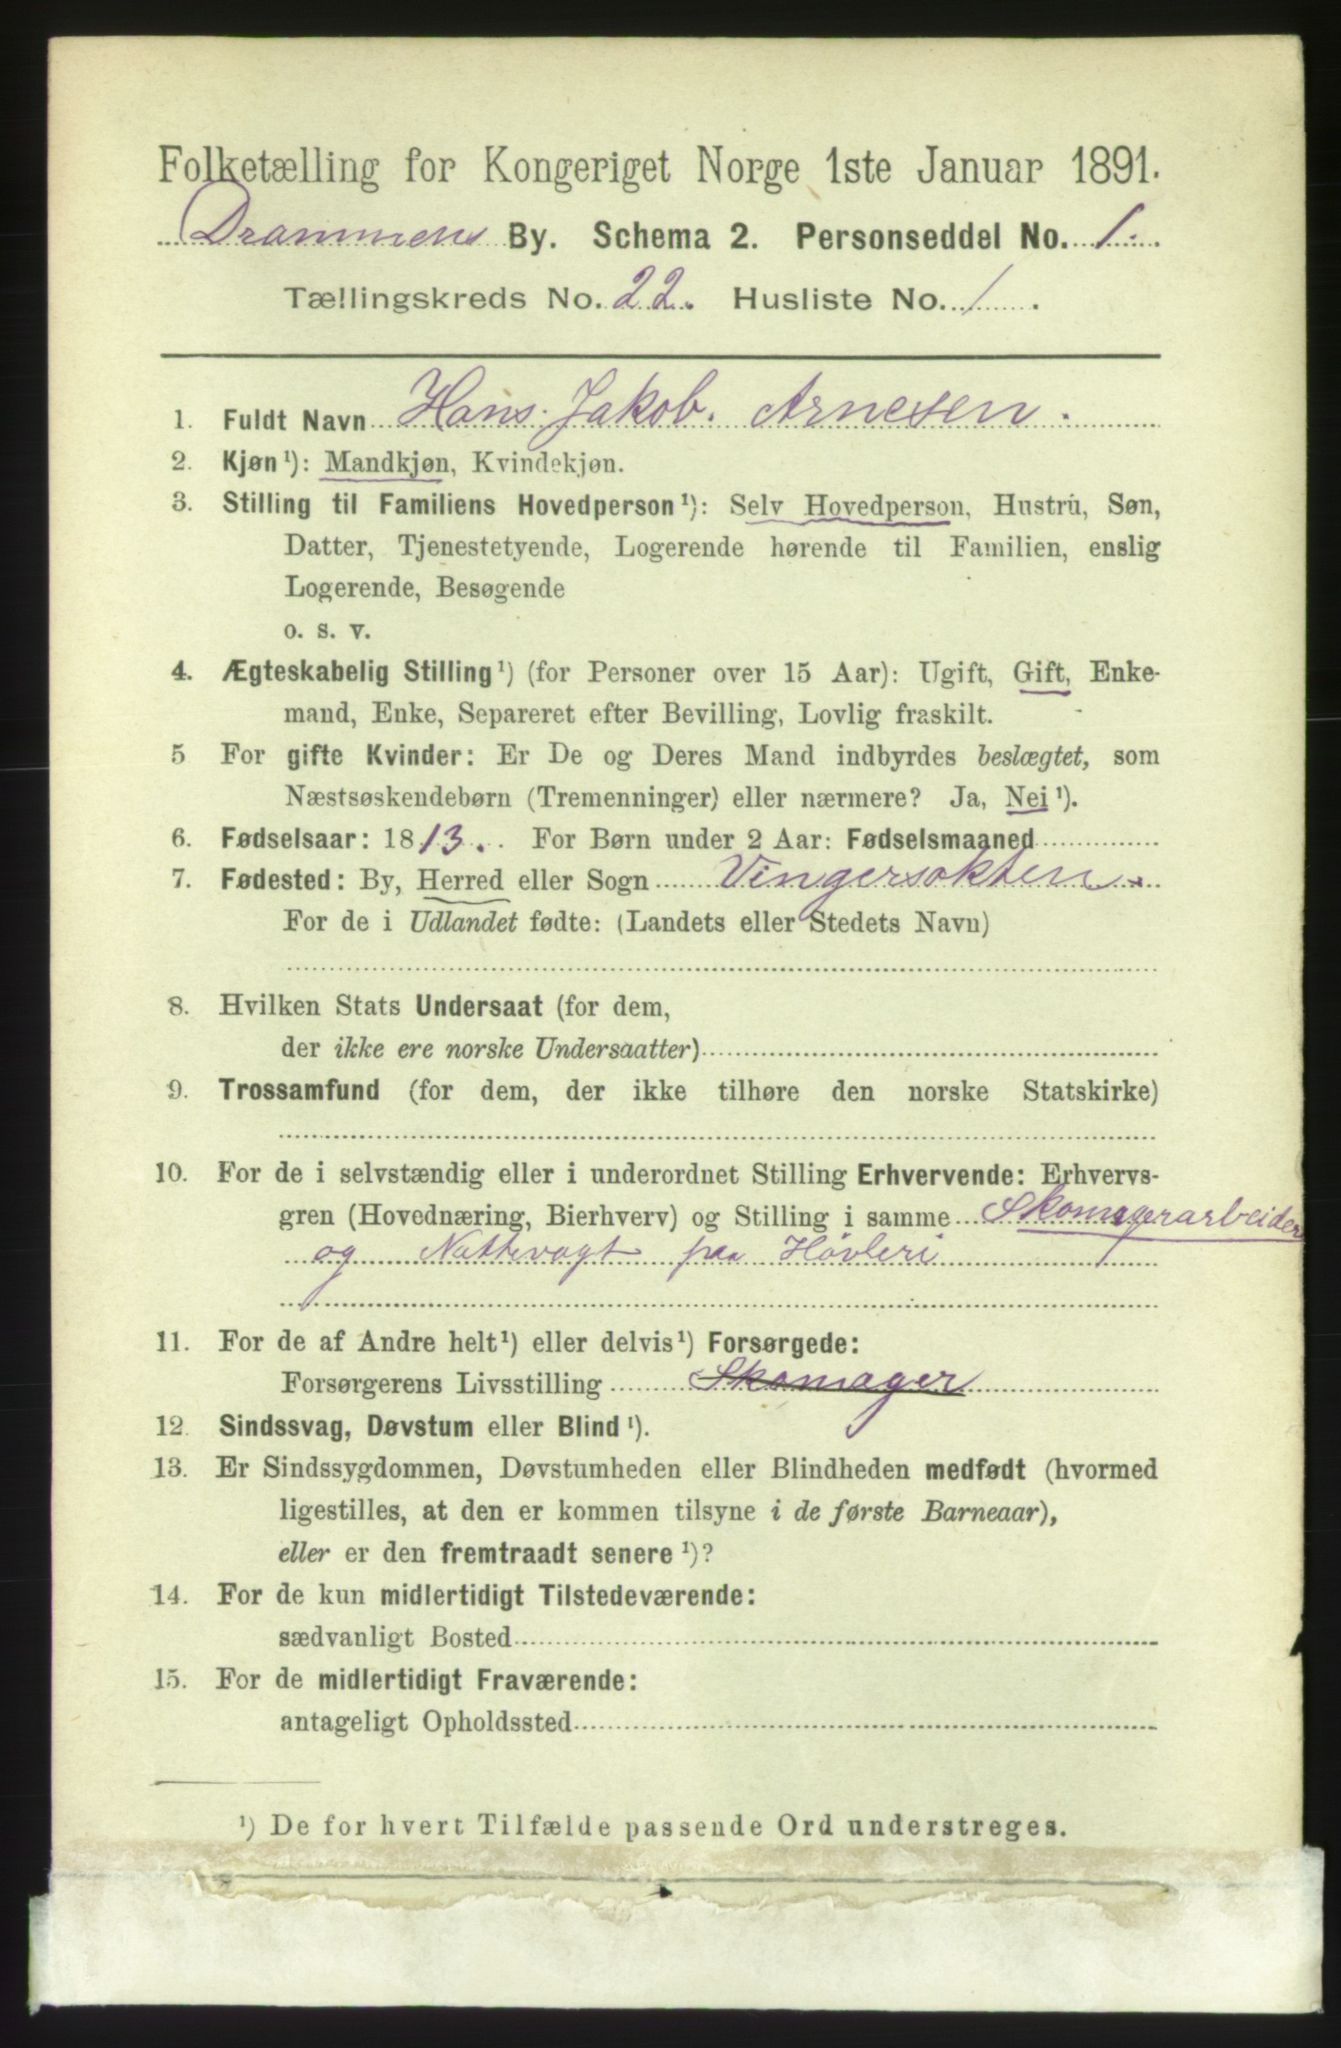 Folketælling for Kongeriget Norge 1ste Januar 1891.
Drammens By. Schema 2. Personseddel No. 1.
Tællingskreds No. 22. Husliste No. 1.
1. Fuldt Navn Hans Jakob. Arnesen.
2. Kjøn ¹): Mandkjøn, Kvindekjøn.
3. Stilling til Familiens Hovedperson ¹): Selv Hovedperson, Hustru, Søn,
Datter, Tjenestetyende, Logerende hørende til Familien, enslig
Logerende, Besøgende
o. s. v.
4. Ægteskabelig Stilling ¹) (for Personer over 15 Aar): Ugift, Gift, Enke-
mand, Enke, Separeret efter Bevilling, Lovlig fraskilt.
5 For gifte Kvinder: Er De og Deres Mand indbyrdes beslægtet, som
Næstsøskendebørn (Tremenninger) eller nærmere? Ja, Nei ¹).
6. Fødselsaar: 1813. For Børn under 2 Aar: Fødselsmaaned
7. Fødested: By, Herred eller Sogn Vingersokten
For de i Udlandet fødte: (Landets eller Stedets Navn)
8. Hvilken Stats Undersaat (for dem,
der ikke ere norske Undersaatter)
9. Trossamfund (for dem, der ikke tilhøre den norske Statskirke)
10. For de i selvstændig eller i underordnet Stilling Erhvervende: Erhvervs-
gren (Hovednæring, Bierhverv) og Stilling i samme Skomagerarbeider
og Nattevagt paa Hövleri
11. For de af Andre helt ¹) eller delvis ¹) Forsørgede:
Forsørgerens Livsstilling Skomager
12. Sindssvag, Døvstum eller Blind ¹).
13. Er Sindssygdommen, Døvstumheden eller Blindheden medfødt (hvormed
ligestilles, at den er kommen tilsyne i de første Barneaar),
eller er den fremtraadt senere ¹)?
14. For de kun midlertidigt Tilstedeværende:
sædvanligt Bosted
15. For de midlertidigt Fraværende:
antageligt Opholdssted
¹) De for hvert Tilfælde passende Ord understreges.